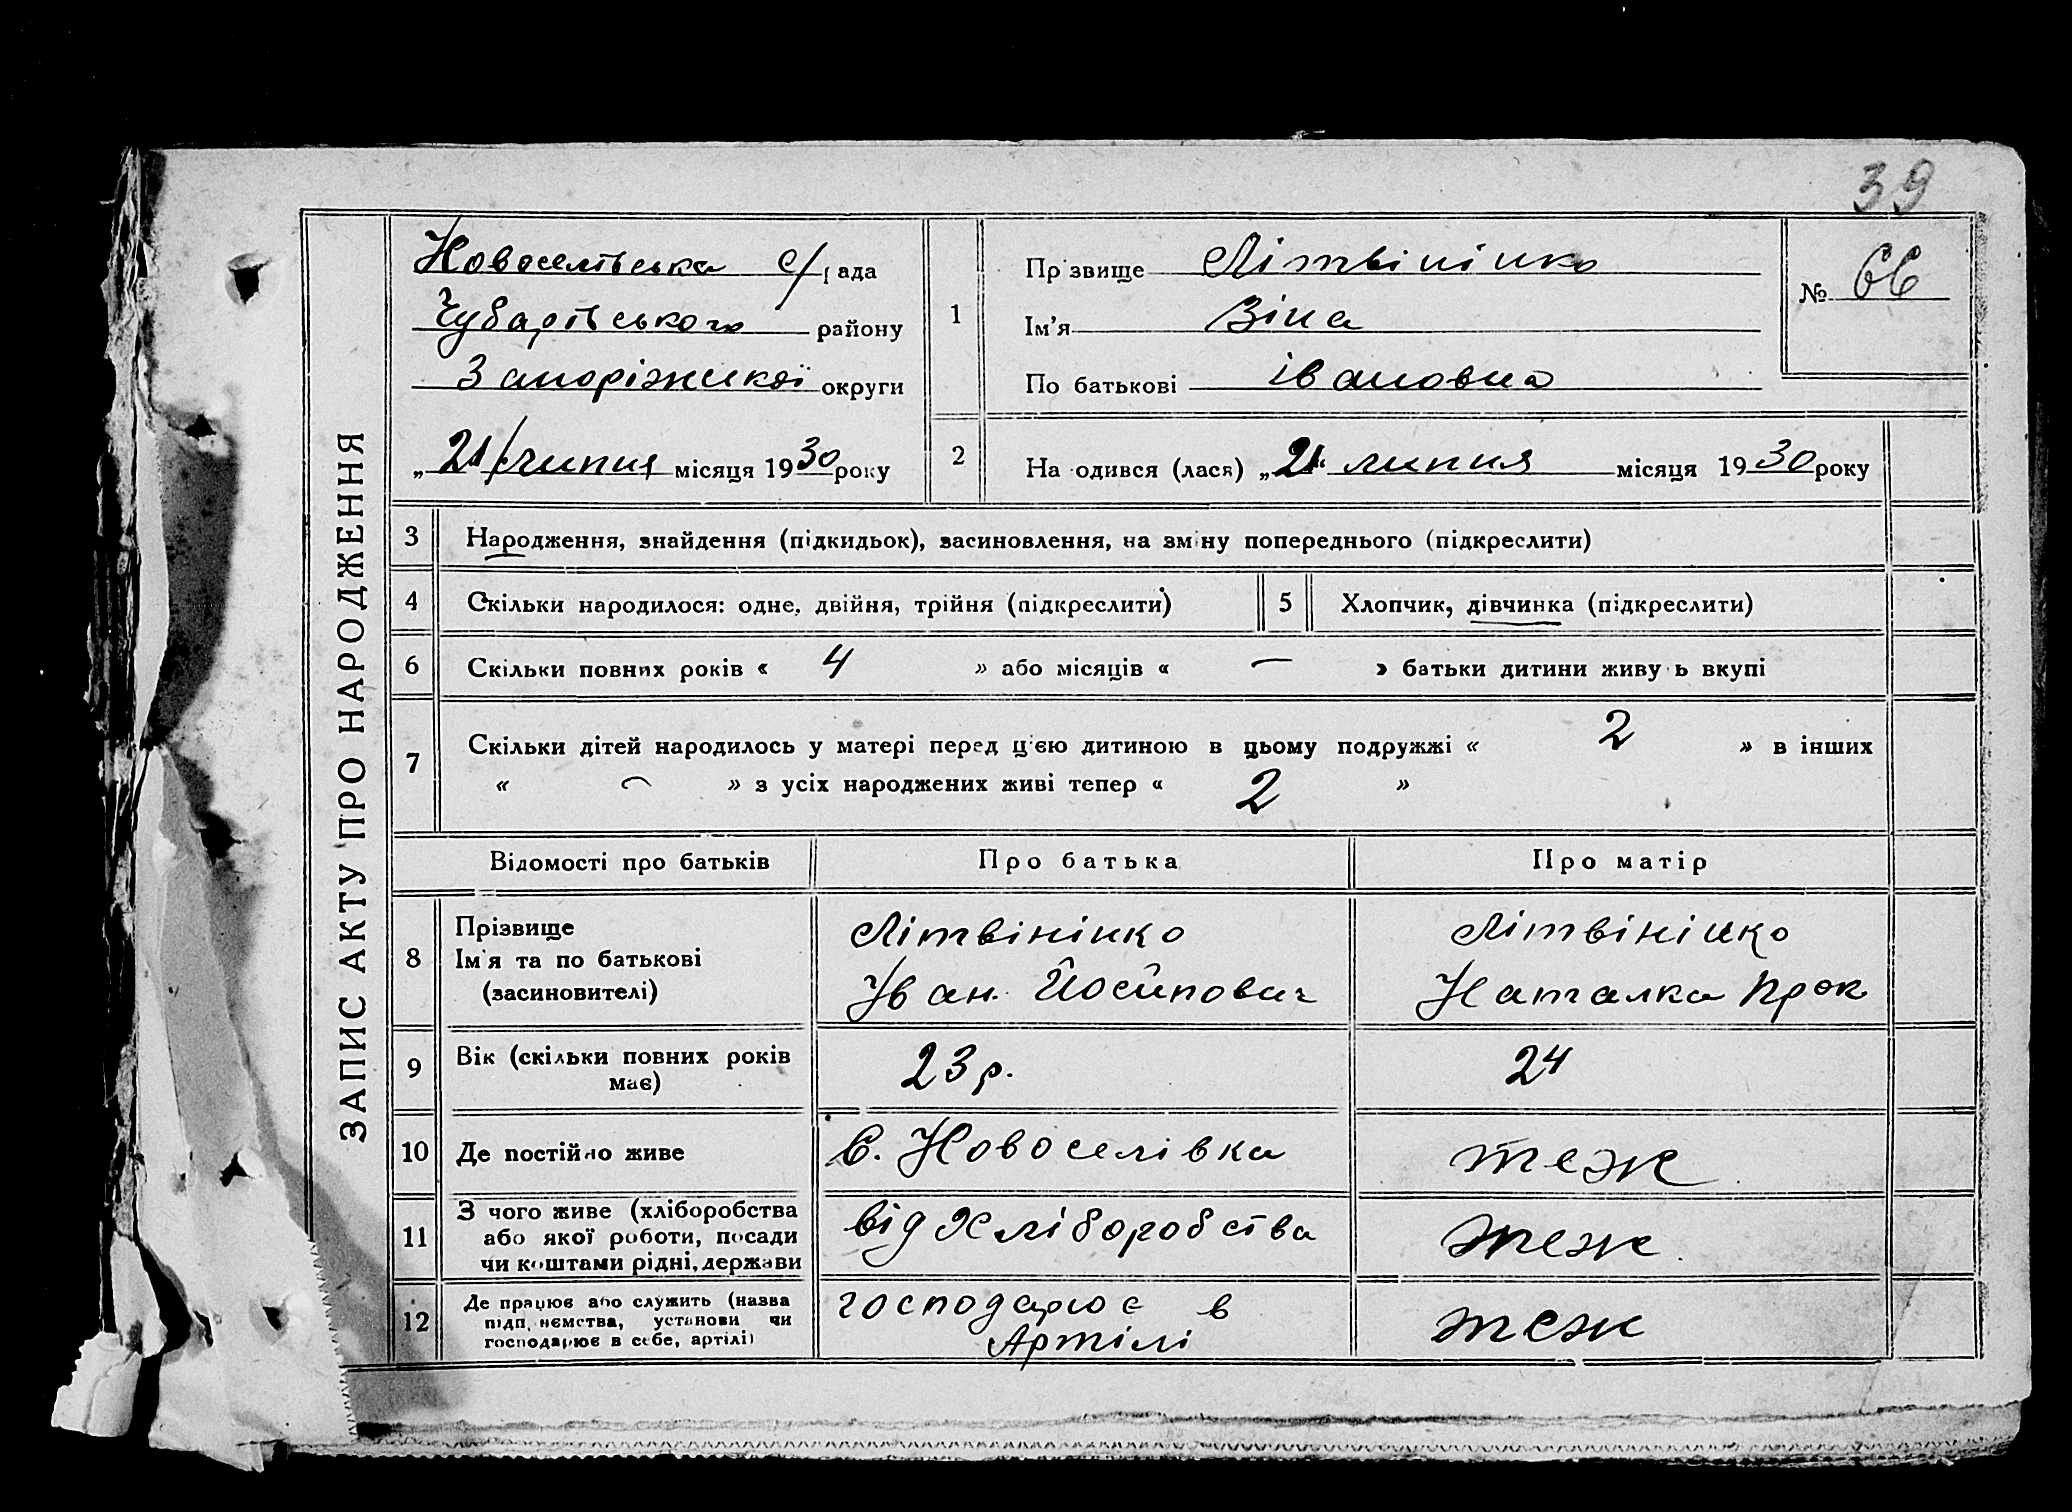 39
ЗАПИС АКТУ ПРО НАРОДЖЕННЯ
Новоселівська с/рада
Чубарівського району
Запоріжської округи
„21" липня місяця 1930 року
1 Прізвище Літвінінко
Ім'я Зіна
По батькові Івановна
№ 66
2 Народився (лася) „21" липня місяця 1930 року
3 Народження, знайдення (підкидьок), засиновлення, на зміну попереднього (підкреслити)
4 Скільки народилося: одне, двійня, трійня (підкреслити) 5 Хлопчик, дівчинка (підкреслити)
6 Скільки повних років « 4 » або місяців « — » батьки дитини живуть вкупі
7 Скільки дітей народилось у матері перед цією дитиною в цьому подружжі « 2 » в інших
« — » з усіх народжених живі тепер « 2 »
Відомості про батьків Про батька Про матір
8 Прізвище
Ім'я та по батькові
(засиновителі)
Літвінінко
Іван Йосипович
Літвінінко
Наталка Прок
9 Вік (скільки повних років
має)
23 р.
24
10 Де постійно живе С. Новоселівка теж
11 З чого живе (хліборобства
або якої роботи, посади
чи коштами рідні, держави
від Хліборобства
теж
12 Де працює або служить (назва
підприємства, установи чи
господарює в себе, артілі)
господарює в
Артілі
теж